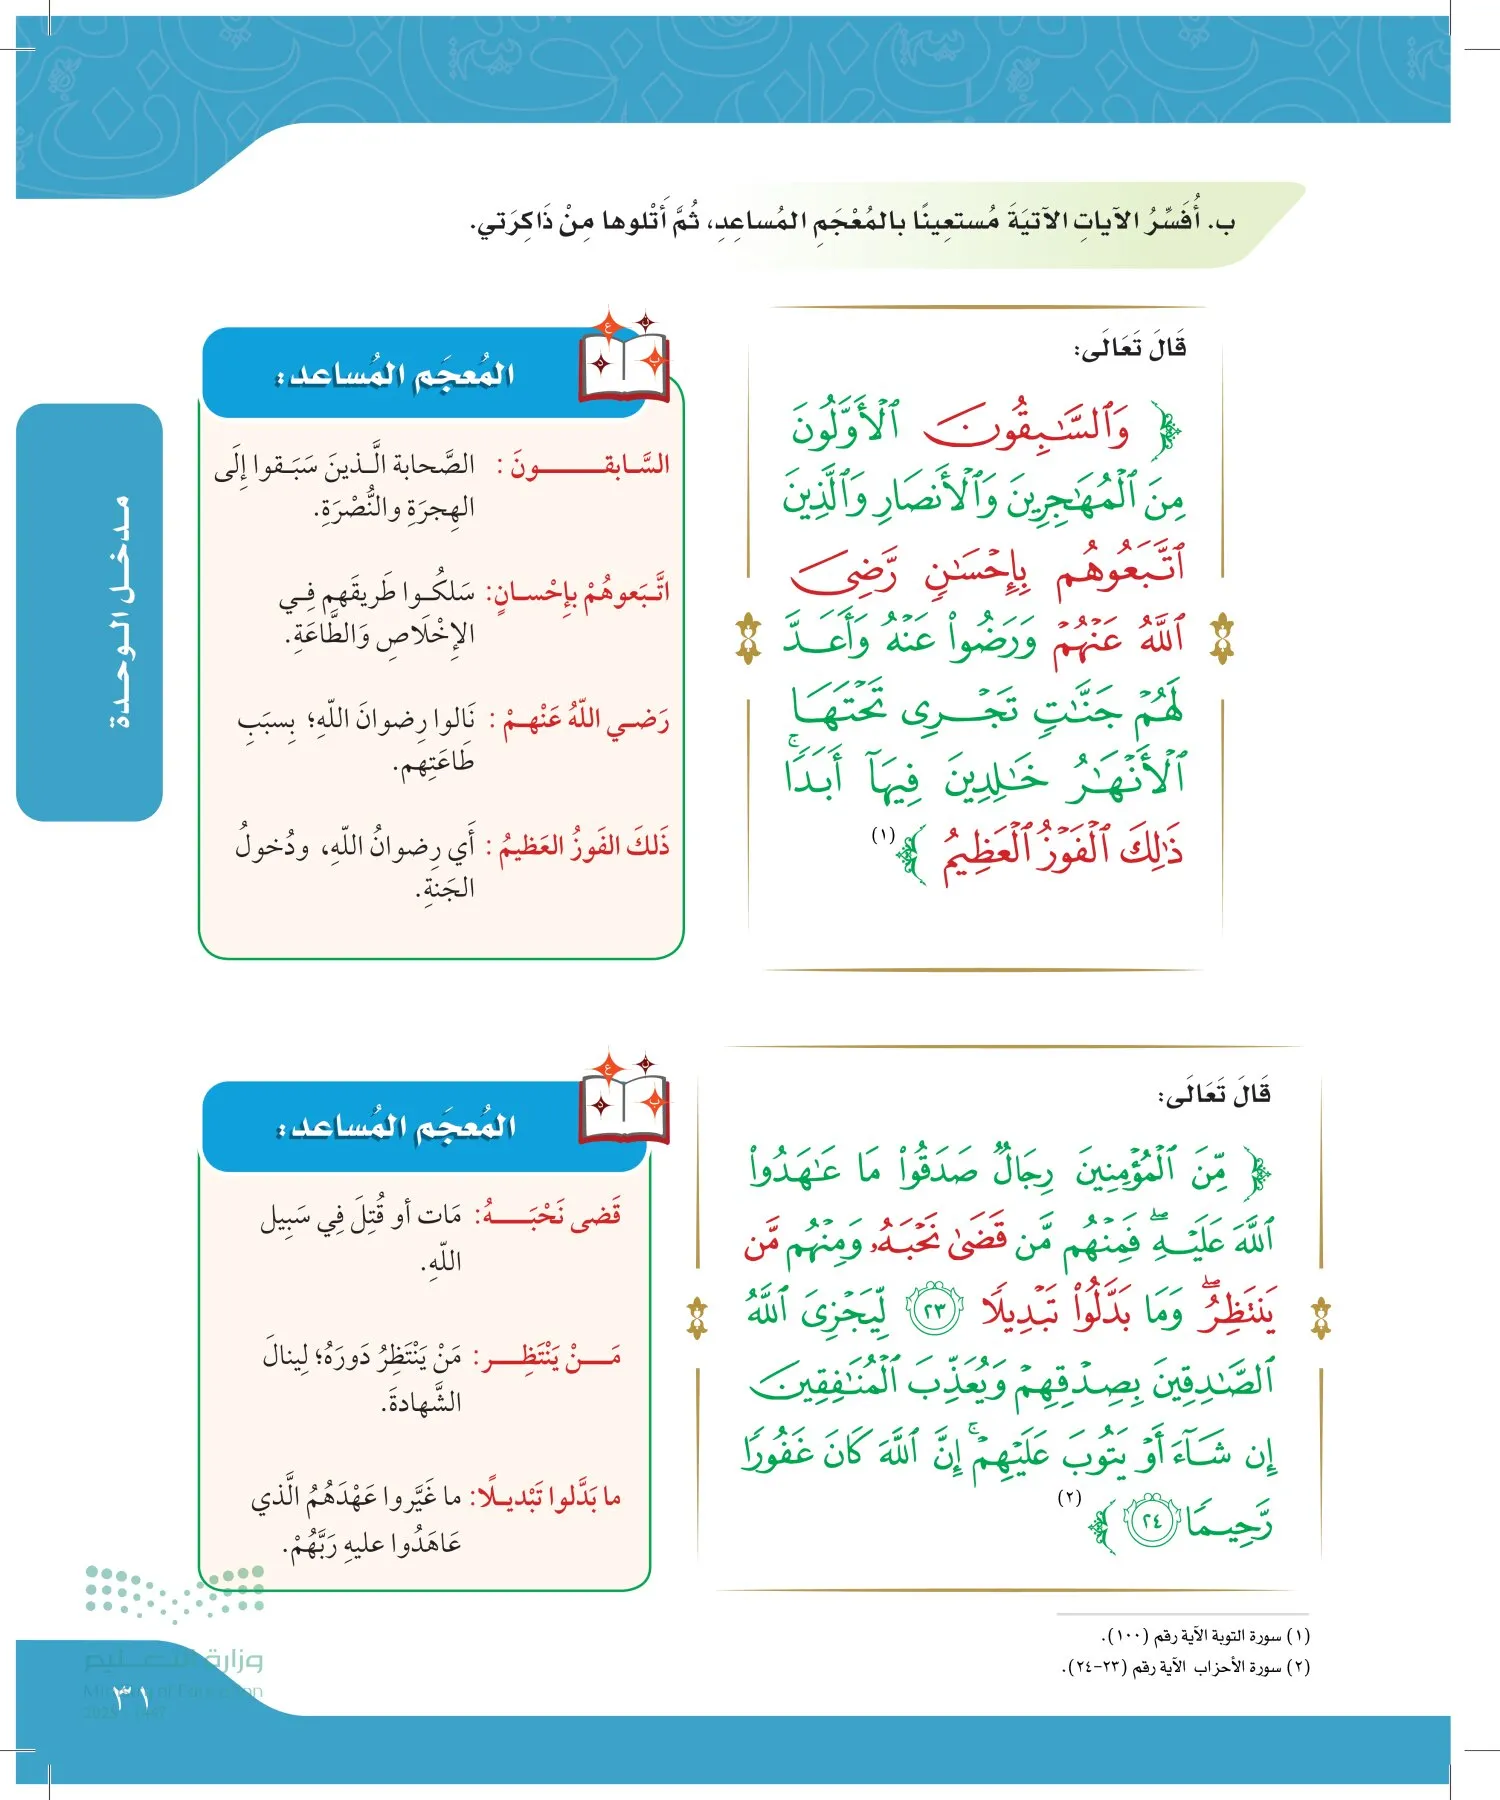 ب. أُفَسِّرُ الآياتِ الآتيَةَ مُستعِينًا بالمُعْجَمِ المُساعِدِ، ثُمَّ أَتْلوها مِنْ ذَاكِرَتي.
قَالَ تَعَالَى:
﴿ وَٱلسَّٰبِقُونَ ٱلْأَوَّلُونَ
مِنَ ٱلْمُهَٰجِرِينَ وَٱلْأَنصَارِ وَٱلَّذِينَ
ٱتَّبَعُوهُم بِإِحْسَٰنٍ رَّضِيَ
ٱللَّهُ عَنْهُمْ وَرَضُوا۟ عَنْهُ وَأَعَدَّ
لَهُمْ جَنَّٰتٍ تَجْرِى تَحْتَهَا
ٱلْأَنْهَٰرُ خَٰلِدِينَ فِيهَآ أَبَدًا ۚ
ذَٰلِكَ ٱلْفَوْزُ ٱلْعَظِيمُ ﴾ (١)
المُعجَم المُساعد:
السَّابقونَ : الصَّحابة الَّذينَ سَبَقوا إِلَى
الهِجرَةِ والنُّصْرَةِ.
اتَّبَعوهُمْ بإِحْسانٍ: سَلكُوا طَريقَهم فِي
الإِخْلَاصِ وَالطَّاعَةِ.
رَضي اللّهُ عَنْهمْ : نَالوا رِضوانَ اللّهِ؛ بِسبَبِ
طَاعَتِهم.
ذَلكَ الفَوزُ العَظيمُ : أَي رِضوانُ اللّهِ، ودُخولُ
الجَنةِ.
قَالَ تَعَالَى:
﴿ مِّنَ ٱلْمُؤْمِنِينَ رِجَالٌ صَدَقُوا۟ مَا عَٰهَدُوا۟
ٱللَّهَ عَلَيْهِ ۖ فَمِنْهُم مَّن قَضَىٰ نَحْبَهُۥ وَمِنْهُم مَّن
يَنتَظِرُ ۖ وَمَا بَدَّلُوا۟ تَبْدِيلًا ٢٣ لِّيَجْزِىَ ٱللَّهُ
ٱلصَّٰدِقِينَ بِصِدْقِهِمْ وَيُعَذِّبَ ٱلْمُنَٰفِقِينَ
إِن شَآءَ أَوْ يَتُوبَ عَلَيْهِمْ ۚ إِنَّ ٱللَّهَ كَانَ غَفُورًا
رَّحِيمًا ٢٤ ﴾ (٢)
المُعجَم المُساعد:
قَضى نَحْبَهُ: مَات أو قُتِلَ فِي سَبِيل
اللّهِ.
مَنْ يَنْتَظِر: مَنْ يَنْتَظِرُ دَورَهُ؛ لِينالَ
الشَّهادةَ.
ما بَدَّلوا تَبْديلًا: ما غَيَّروا عَهْدَهُمُ الَّذي
عَاهَدُوا عليهِ رَبَّهُمْ.
(١) سورة التوبة الآية رقم (١٠٠).
(٢) سورة الأحزاب الآية رقم (٢٣-٢٤).
مدخل الوحدة
وزارة التعليم
Ministry of Education
2025 - 1447
٣١